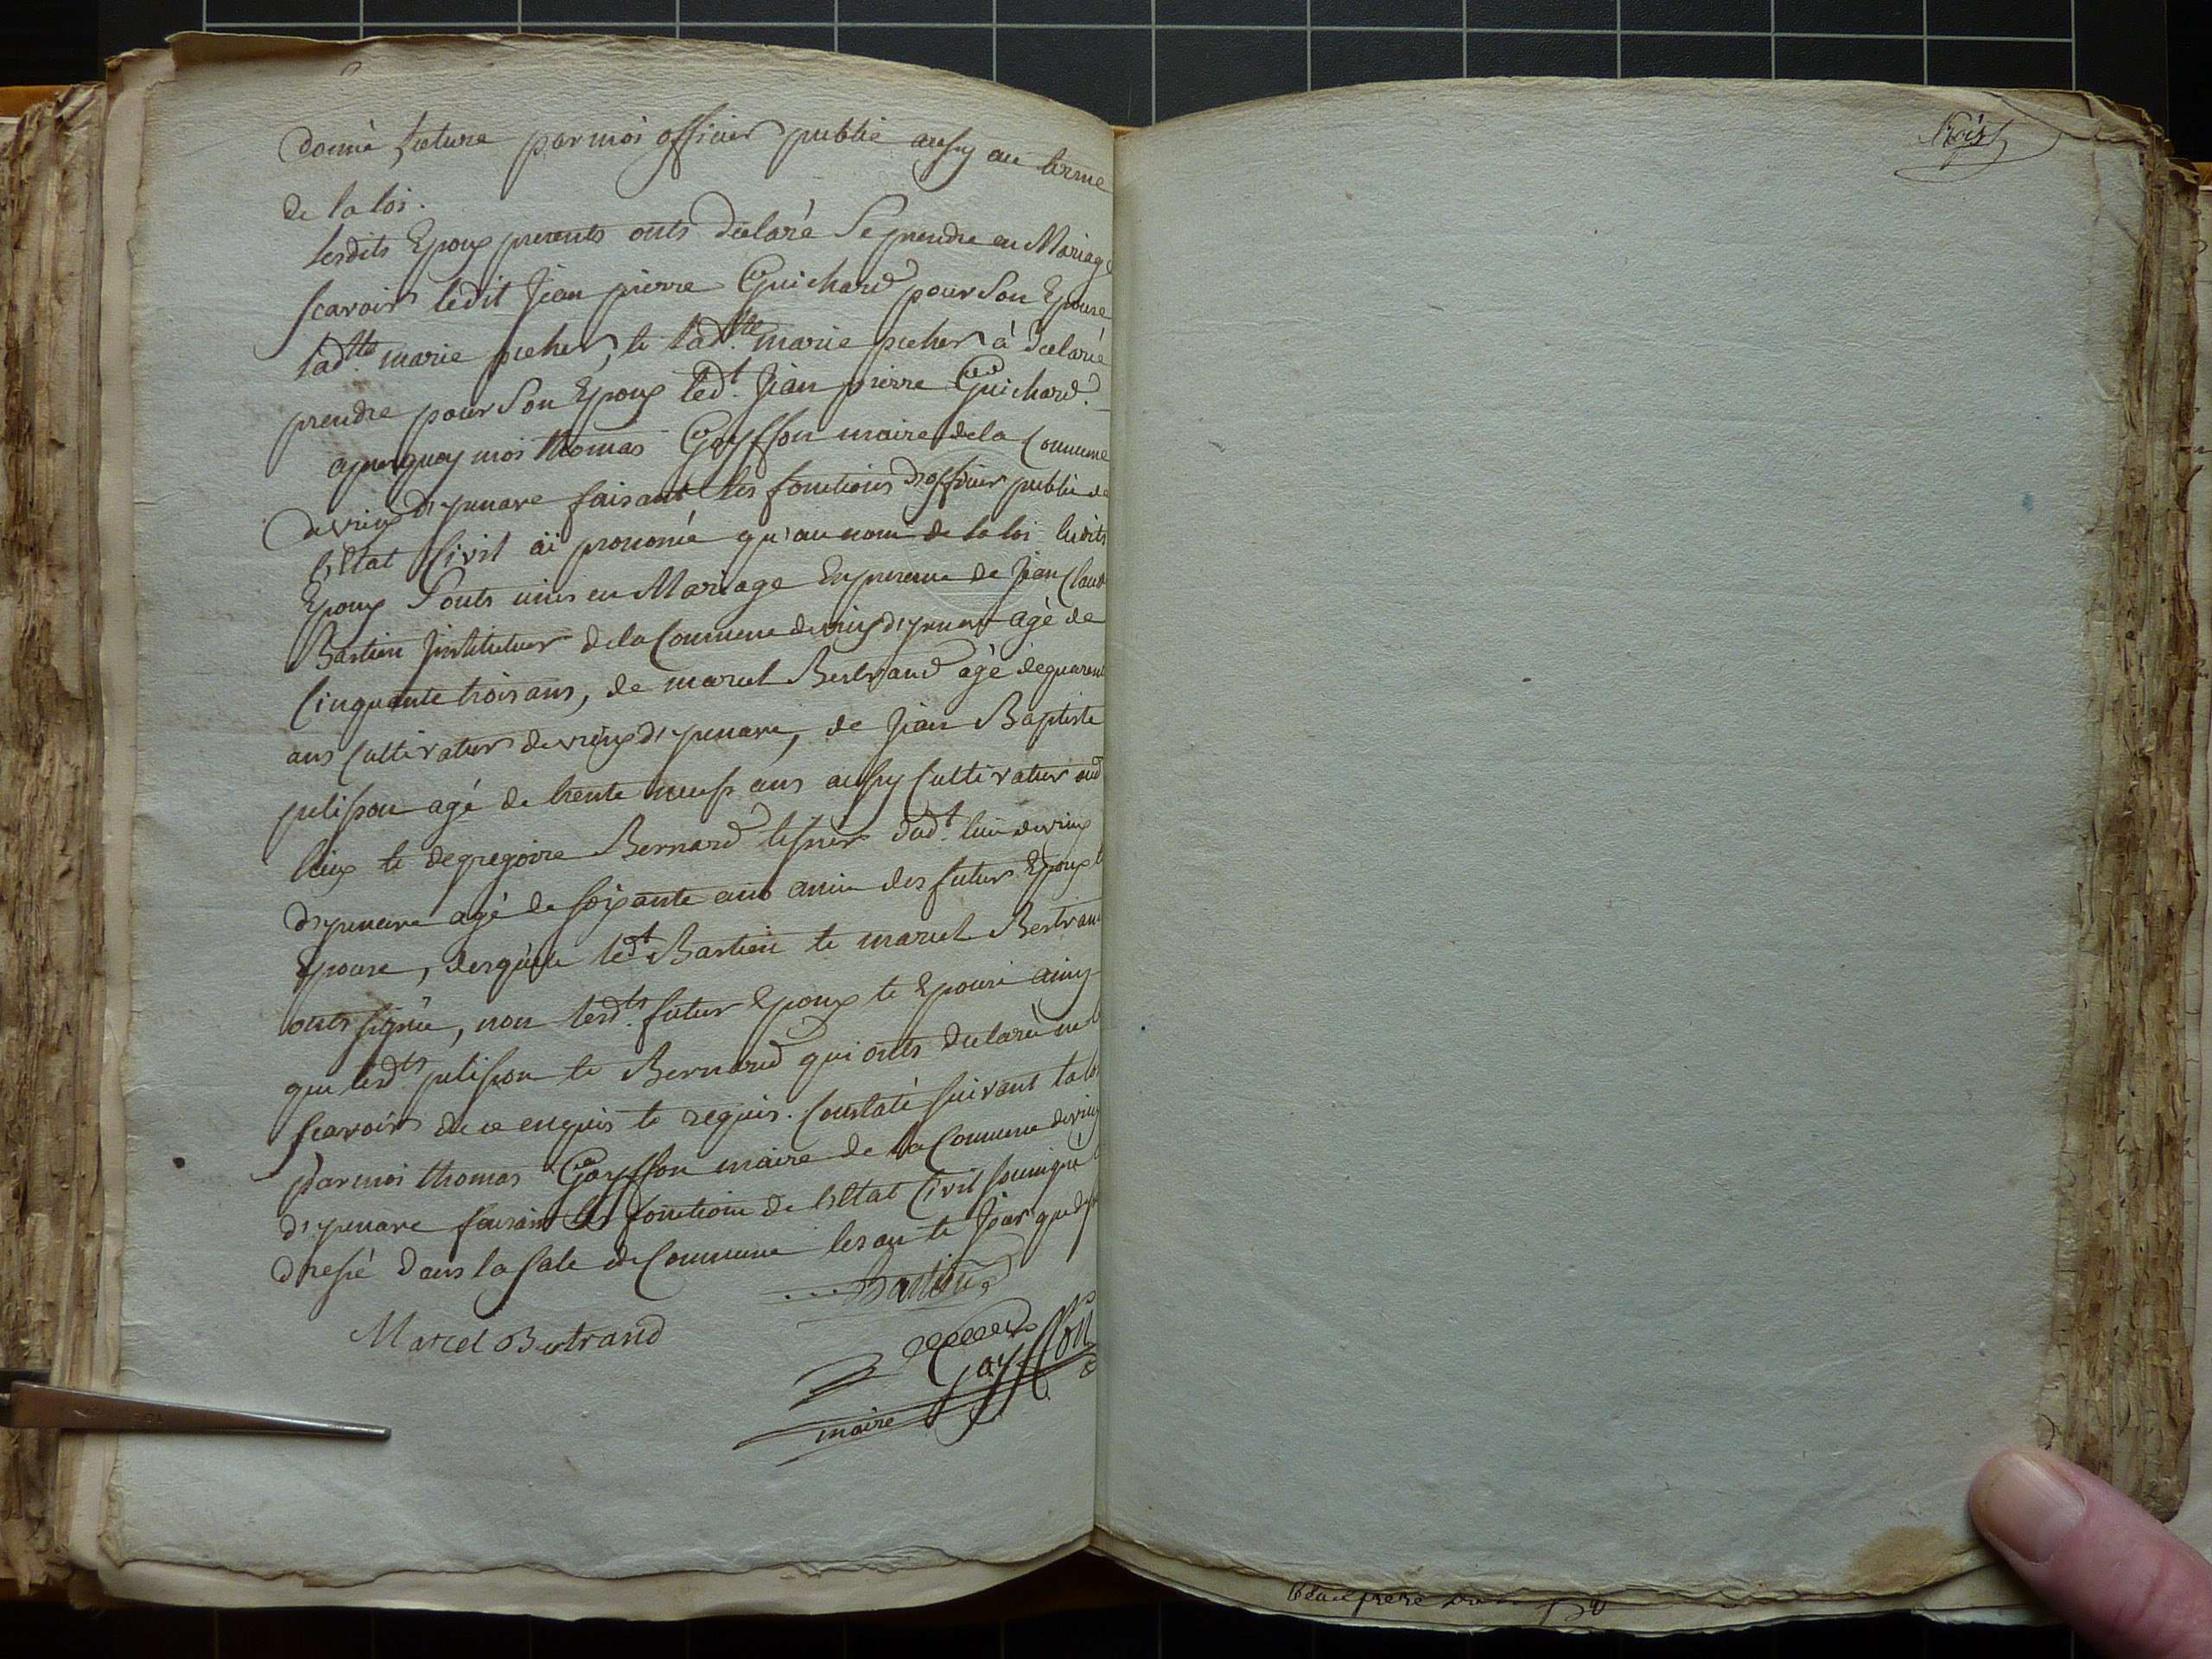 donné lecture par moi officier public aussy au terme
de la loi.
lesdits Epoux presents onts déclaré Se prendre en Mariage
scavoir ledit Jean pierre Guichard pour Son Epouse
lad.tte marie pecher, te lad.tte marie pecher à déclaré
prendre pour Son Epoux led.t Jean pierre Guichard.
apres quoy moi thomas Gayffon maire de la Commune
de vieux d'yenave faisant les fonctions d'officier public de
l'Etat Civil ai prononcé qu'au nom de la loi lesdits
Epoux Sonts unis en Mariage En presence de Jean Claude
Bastien Instituteur de la Commune de vieux d'yenave agé de
Cinquante trois ans, de marcel Bertrand agé de quarente
ans Cultivateur de vieux d'yenave, de Jean Baptiste
pelisson agé de trente neuf ans aussy Cultivateur aud
lieux te de gregoire Bernard tesserer dud.t lieu de vieux
d'yenave agé de soixante ans amie des futur Epoux te
Epouse, desquels led.t Bastien te marcel Bertrand
onts signée, non lesd.ts futur Epoux te Epouse ainsy
que lesd.ts pelisson te Bernard qui onts déclaré ne
scavoir de ce enquis te requis. Constaté suivant la loi
par moi thomas Gayffon maire de la Commune de vieux
d'yenave faisant les fonctions de l'Etat Civil soussigné
dressé dans la sale de Commune les an te Jour que d
Bastien
Marcel Bertrand
Gayffon
maire